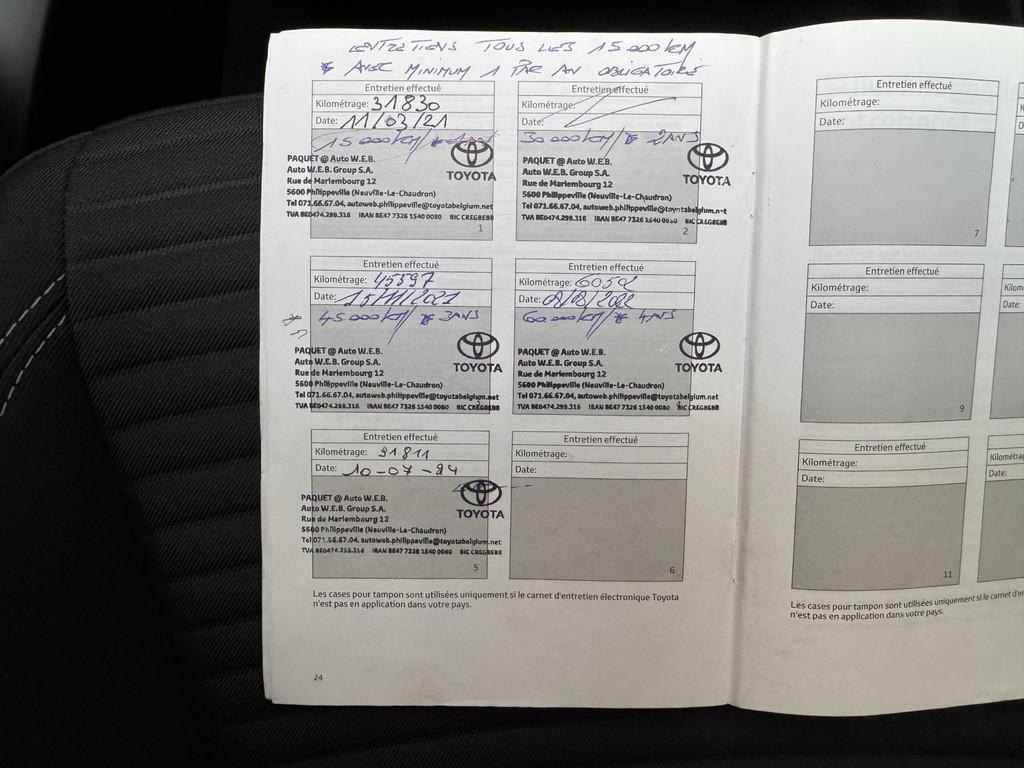 ENTRETIENS TOUS LES 15 000 KM
* AVEC MINIMUM 1 PAR AN OBLIGATOIRE
Entretien effectué
Kilométrage: 31830
Date: 11/03/21
15 000 KM/ *
PAQUET @ Auto W.E.B.
Auto W.E.B. Group S.A.
Rue de Mariembourg 12
5600 Philippeville (Neuville-Le-Chaudron)
Tel 071.66.67.04, autoweb.philippeville@toyotabelgium.net
TVA BE0474.299.316 IBAN BE47 7326 1540 0080 BIC CREGBEBB
TOYOTA
1
Entretien effectué
Kilométrage:
Date:
30 000 KM/ * 2 ANS
PAQUET @ Auto W.E.B.
Auto W.E.B. Group S.A.
Rue de Mariembourg 12
5600 Philippeville (Neuville-Le-Chaudron)
Tel 071.66.67.04, autoweb.philippeville@toyotabelgium.net
TVA BE0474.299.316 IBAN BE47 7326 1540 0080 BIC CREGBEBB
TOYOTA
2
Entretien effectué
Kilométrage: 45397
Date: 15/11/2021
45 000 KM/ * 3 ANS
PAQUET @ Auto W.E.B.
Auto W.E.B. Group S.A.
Rue de Mariembourg 12
5600 Philippeville (Neuville-Le-Chaudron)
Tel 071.66.67.04, autoweb.philippeville@toyotabelgium.net
TVA BE0474.299.316 IBAN BE47 7326 1540 0080 BIC CREGBEBB
TOYOTA
Entretien effectué
Kilométrage:
Date:
60 000 KM/ * 4 ANS
PAQUET @ Auto W.E.B.
Auto W.E.B. Group S.A.
Rue de Mariembourg 12
5600 Philippeville (Neuville-Le-Chaudron)
Tel 071.66.67.04, autoweb.philippeville@toyotabelgium.net
TVA BE0474.299.316 IBAN BE47 7326 1540 0080 BIC CREGBEBB
TOYOTA
4
Entretien effectué
Kilométrage: 91811
Date: 10-07-24
PAQUET @ Auto W.E.B.
Auto W.E.B. Group S.A.
Rue de Mariembourg 12
5600 Philippeville (Neuville-Le-Chaudron)
Tel 071.66.67.04, autoweb.philippeville@toyotabelgium.net
TVA BE0474.299.316 IBAN BE47 7326 1540 0080 BIC CREGBEBB
TOYOTA
5
Entretien effectué
Kilométrage:
Date:
6
Les cases pour tampon sont utilisées uniquement si le carnet d'entretien électronique Toyota
n'est pas en application dans votre pays.
24
Entretien effectué
Kilométrage:
Date:
7
Entretien effectué
Kilométrage:
Date:
9
Entretien effectué
Kilométrage:
Date:
11
Kilom
Date:
Kilom
Date:
Kilométrag
Date:
Les cases pour tampon sont utilisées uniquement si le carnet d'en
n'est pas en application dans votre pays.